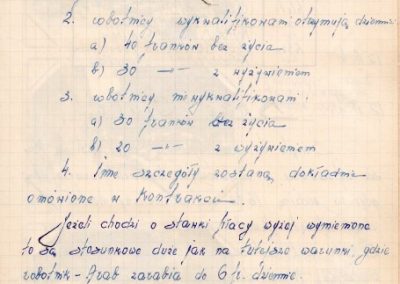 2. robotnicy wykwalifikowani otrzymują dziennie:
a) 40 franków bez życia
b) 30 —"— z wyżywieniem
3. robotnicy niewykwalifikowani:
a) 30 franków bez życia
b) 20 —"— z wyżywieniem
4. Inne szczegóły zostaną dokładnie
omówione w kontrakcie.
Jeżeli chodzi o stawki płacy wyżej wymienione
to są stosunkowo duże jak na tutejsze warunki, gdzie
robotnik - Arab zarabia do 6 fr. dziennie.